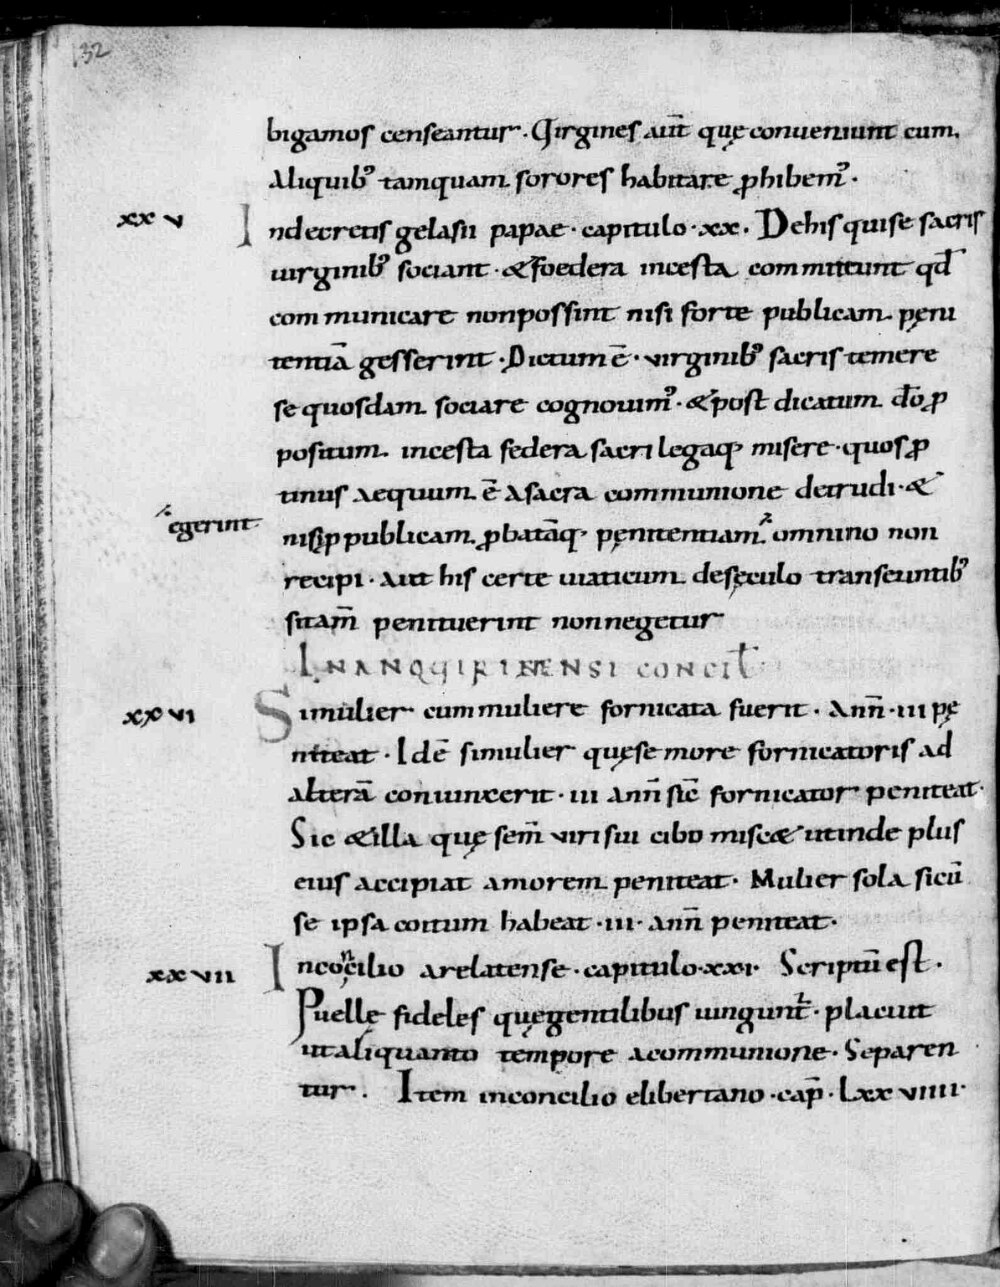 132
bigamos censeantur · Virgines aut̄ quę conueniunt cum
Aliquibꝰ tamquam sorores habitare ꝓhibemꝰ ·
xxv Indecretis gelasii papae · capitulo · xx · Dehis quise sacris
uirginibꝰ sociant · &foedera incesta committunt qđ
communicare nonpossint nisi forte publicam pęni
tentiā gesserint · Dictum ē · virginibꝰ sacris temere
se quosdam sociare cognouimꝰ · &post dicatum dō ꝓ
positum incesta federa sacrilegaq; misere · quos ꝓ
tinus aequum ē Asacra communione detrudi · &
egerint nisi ꝑ publicam ꝓbatāq; pęnitentiam omnino non
recipi · Aut his certe uiaticum desęculo transeuntibꝰ
sitam̄ penituerint nonnegetur
INANQUIRINENSI CONCIł
xxvi Simulier cum muliere fornicata fuerit · Ann̄ · iii pę
niteat · Idē simulier quęse more fornicatoris ad
alterā coniunxerit · iii Ann̄ sic̄ fornicator peniteat ·
Sic &illa quę sem̄ viri sui cibo misc& utinde plus
eius accipiat amorem peniteat · Mulier sola sicū
se ipsa coitum habeat · iii · ann̄ peniteat ·
xxvii Inconcilio arelatense · capitulo · xxi · Scriptū est ·
Puellę fideles quęgentilibus iungunt̄ · placuit
utaliquanto tempore acommunione · Separen
tur · Item inconcilio elibertano · cap̄ · Lxxviiii ·